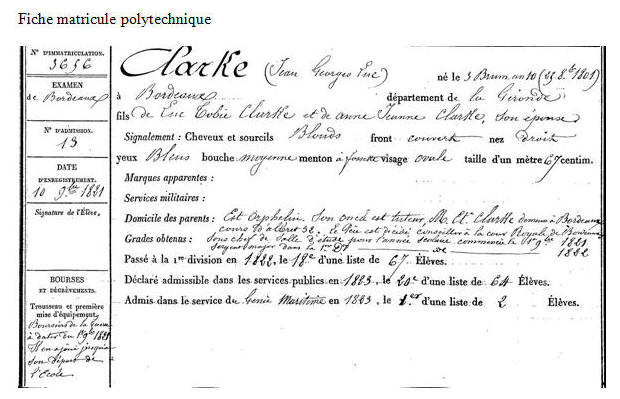 Fiche matricule polytechnique
N° D'IMMATRICULATION.
3656
EXAMEN
de Bordeaux
N° D'ADMISSION.
13
DATE
D'ENREGISTREMENT.
10 9bre 1821
Signature de l'Élève.
BOURSES
ET DÉGRÈVEMENTS.
Trousseau et première
mise d'équipement.
Boursier de la Guerre
à dater du 1er 9bre 1821
Il en a joui jusqu'à
son départ de
l'École
Clarke (Jean Georges Luc) né le 3 Brum. an 10 (25 8bre 1801)
à Bordeaux département de la Gironde
fils de Luc Tobie Clarke et de anne Jeanne Clarke, son épouse
Signalement : Cheveux et sourcils Blonds front couvert nez droit
yeux Bleus bouche moyenne menton à fossette visage ovale taille d'un mètre 67 centim.
Marques apparentes :
Services militaires :
Domicile des parents : Est Orphelin. Son oncle est tuteur, M. Clarke demeure à Bordeaux
cours d'albret 32. le Père est décédé conseiller à la cour Royale de Bordeaux
Grades obtenus : Sous chef de Salle d'étude pour l'année scolaire commencée le 1er 9bre 1821
Sergent major dans la 1re Don de 1822
Passé à la 1re division en 1822, le 18e d'une liste de 67 Élèves.
Déclaré admissible dans les services publics en 1823, le 20e d'une liste de 64 Élèves.
Admis dans le service du Génie Maritime en 1823, le 1er d'une liste de 2 Élèves.